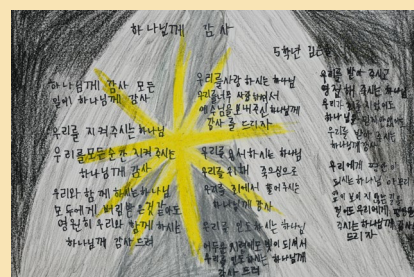 하나님께 감사
5학년
하나님께 감사 모든
일에 하나님께 감사
우리를 지켜주시는 하나님
우리를 모든순간 지켜 주시는
하나님께 감사
우리와 함께 하시는 하나님
모두에게 버림받은것 같아도
영원히 우리와 함께 하시는
하나님께 감사 드려
우리를 사랑하시는 하나님
우리를 너무 사랑하셔서
예수님을 보내주신 하나님께
감사를 드리자
우리를 용서하시는 하나님
우리를 위해 죽으심으로
우리를 죄에서 풀어주시는
하나님께 감사
우리를 인도하시는 하나님
어두운 시련에도 빛이 되셔서
우리를 인도하시는 하나님께
감사 드려
우리를 받아 주시고
하나님
우리를 받아 주시는
하나님께 감사
우리에게
주시는 하나님
우리에게
주시는 하나님께 감사
드리자